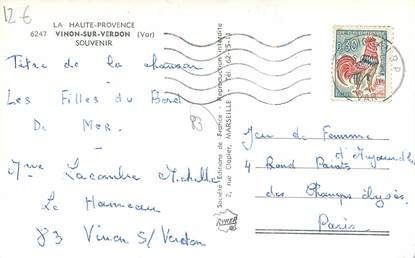 12 €
LA HAUTE-PROVENCE
6247 VINON-SUR-VERDON (Var)
SOUVENIR
Titre de la chanson
Les Filles du Bord
De Mer.
83
Mme Lacombre Michelle
Le Hameau
83 Vinon S/ Verdon
Société Éditions de France - Reproduction interdite
2, rue Clapier, MARSEILLE - Tél. 62-75-11
0,30
VAR
Jeu de Femme
d'Aujourd'hui
4 Rond Points
des Champs élysés.
Paris